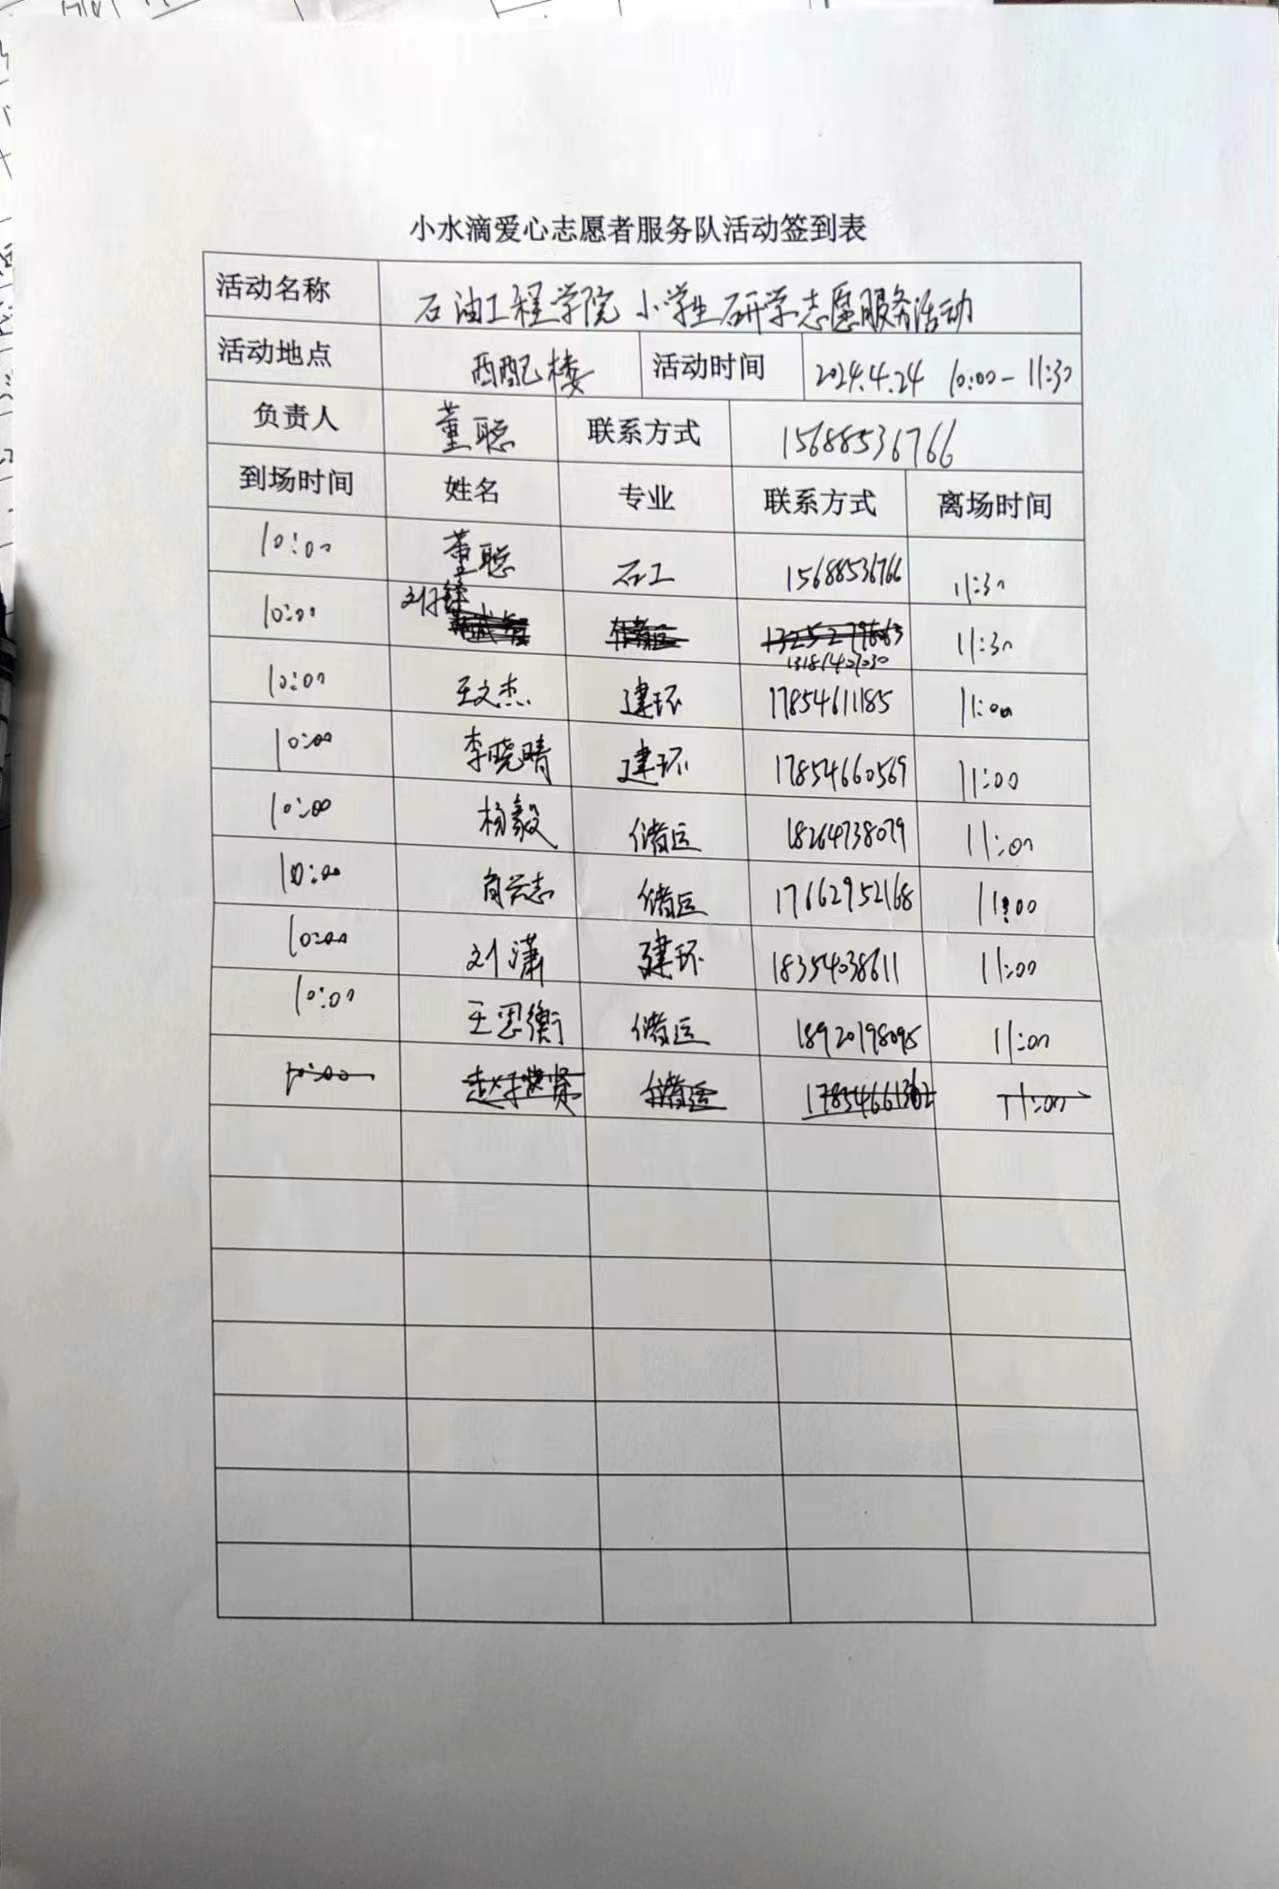 小水滴爱心志愿者服务队活动签到表
活动名称 石油工程学院小学生研学志愿服务活动
活动地点 西配楼 活动时间 2024.4.24 10:00-11:30
负责人 董聪 联系方式 15688536766
到场时间 姓名 专业 联系方式 离场时间
10:00 董聪 石工 15688536766 11:30
10:00 储运 11:30
10:00 王文杰 建环 17854611185 11:00
10:00 李晓晴 建环 17854660569 11:00
10:00 杨毅 储运 18264738079 11:00
10:00 储运 17662952168 11:00
10:00 刘潇 建环 18354038611 11:00
10:00 王思衡 储运 18920198095 11:00
10:00 储运 11:00